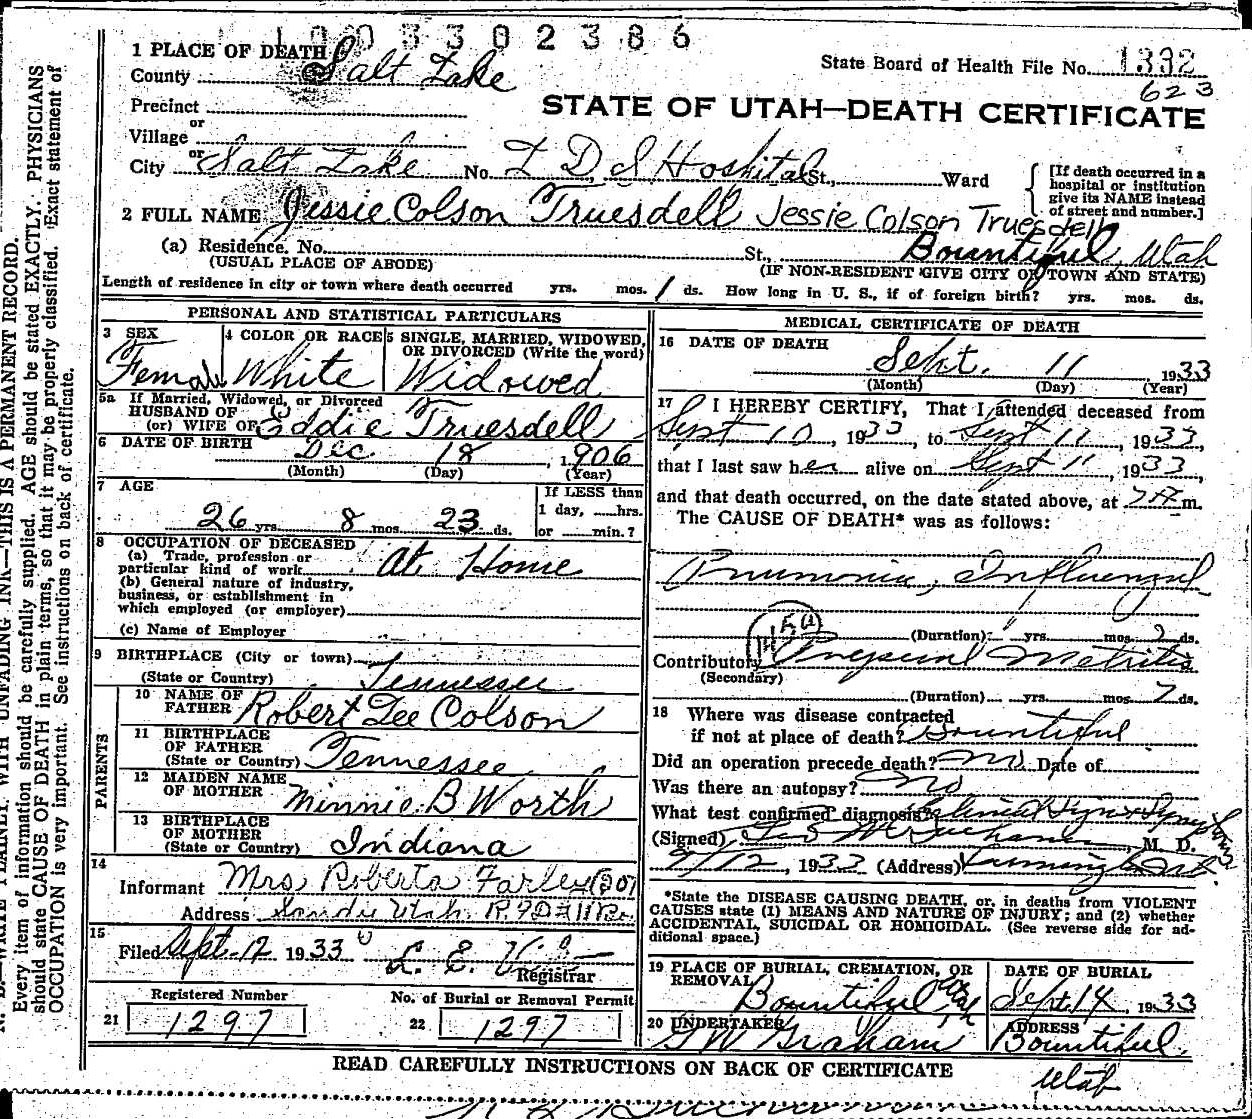 1003302386
1 PLACE OF DEATH
County Salt Lake
State Board of Health File No. 1332
623
Precinct
or
Village
or
STATE OF UTAH—DEATH CERTIFICATE
City Salt Lake No. L D S Hospital St., Ward
[If death occurred in a
hospital or institution
give its NAME instead
of street and number.]
2 FULL NAME Jessie Colson Truesdell Jessie Colson Truesdell
(a) Residence. No. St., Bountiful, Utah
(USUAL PLACE OF ABODE) (IF NON-RESIDENT GIVE CITY OR TOWN AND STATE)
Length of residence in city or town where death occurred yrs. mos. 1 ds. How long in U. S., if of foreign birth? yrs. mos. ds.
PERSONAL AND STATISTICAL PARTICULARS
3 SEX
Female
4 COLOR OR RACE
White
5 SINGLE, MARRIED, WIDOWED,
OR DIVORCED (Write the word)
Widowed
5a If Married, Widowed, or Divorced
HUSBAND OF
(or) WIFE OF Eddie Truesdell
6 DATE OF BIRTH
Dec 18, 1906
(Month) (Day) (Year)
7 AGE
26 yrs. 8 mos. 23 ds.
If LESS than
1 day, hrs.
or min.?
8 OCCUPATION OF DECEASED
(a) Trade, profession or
particular kind of work At Home
(b) General nature of industry,
business, or establishment in
which employed (or employer)
(c) Name of Employer
9 BIRTHPLACE (City or town)
(State or Country) Tennessee
PARENTS
10 NAME OF
FATHER Robert Lee Colson
11 BIRTHPLACE
OF FATHER
(State or Country) Tennessee
12 MAIDEN NAME
OF MOTHER Minnie B Worth
13 BIRTHPLACE
OF MOTHER
(State or Country) Indiana
14
Informant Mrs Roberta Farley
Address Sandy Utah R.F.D #1
15
Filed Sept 12 1933 L. E.
Registrar
Registered Number
21 1297
No. of Burial or Removal Permit
22 1297
MEDICAL CERTIFICATE OF DEATH
16 DATE OF DEATH
Sept. 11, 1933
(Month) (Day) (Year)
17 I HEREBY CERTIFY, That I attended deceased from
Sept 10, 1933, to Sept 11, 1933,
that I last saw her alive on Sept 11, 1933,
and that death occurred, on the date stated above, at 7 A m.
The CAUSE OF DEATH* was as follows:
Pnumonia, Influenzal
145a
(Duration) yrs. mos. 2 ds.
Contributory Metritis
(Secondary)
(Duration) yrs. mos. 7 ds.
18 Where was disease contracted
if not at place of death? Bountiful
Did an operation precede death? no Date of
Was there an autopsy? no
What test confirmed diagnosis? Clinical Signs & Symptoms
(Signed), M. D.
9/12, 1933 (Address) Farmington, Ut.
*State the DISEASE CAUSING DEATH, or, in deaths from VIOLENT
CAUSES state (1) MEANS AND NATURE OF INJURY; and (2) whether
ACCIDENTAL, SUICIDAL OR HOMICIDAL. (See reverse side for ad-
ditional space.)
19 PLACE OF BURIAL, CREMATION, OR
REMOVAL
Bountiful Utah
DATE OF BURIAL
Sept. 14, 1933
20 UNDERTAKER
G W Graham
ADDRESS
Bountiful
Utah
READ CAREFULLY INSTRUCTIONS ON BACK OF CERTIFICATE
N. B.—WRITE PLAINLY, WITH UNFADING INK—THIS IS A PERMANENT RECORD.
Every item of information should be carefully supplied. AGE should be stated EXACTLY. PHYSICIANS
should state CAUSE OF DEATH in plain terms, so that it may be properly classified. Exact statement of
OCCUPATION is very important. See instructions on back of certificate.